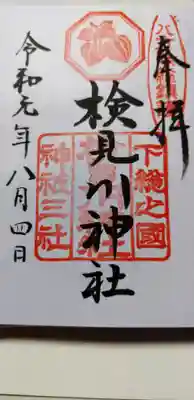 奉拝
下総之國
検見川神社
神祇三社
令和元年八月四日